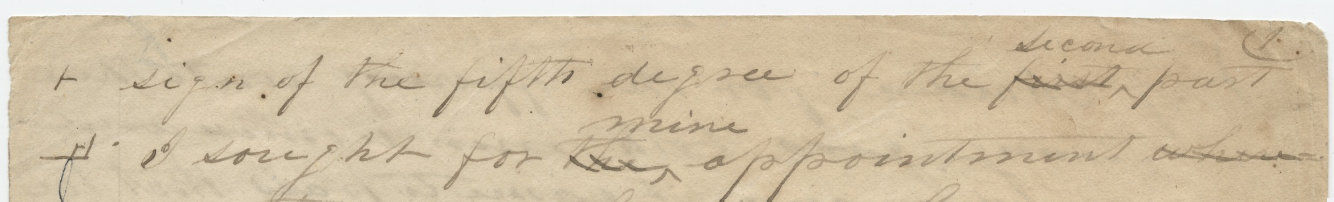 sign of the fifth degree of the first second part
I sought for the mine appointment